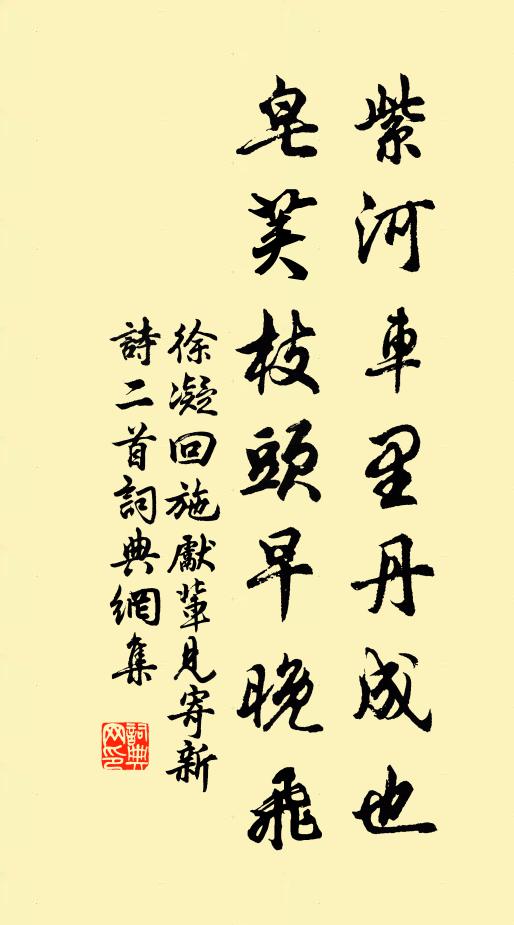 紫河車里丹成也
皂芙枝頭早晚飛
徐凝回施獻輩見寄新
詩二首詞典網集
詞典
网印